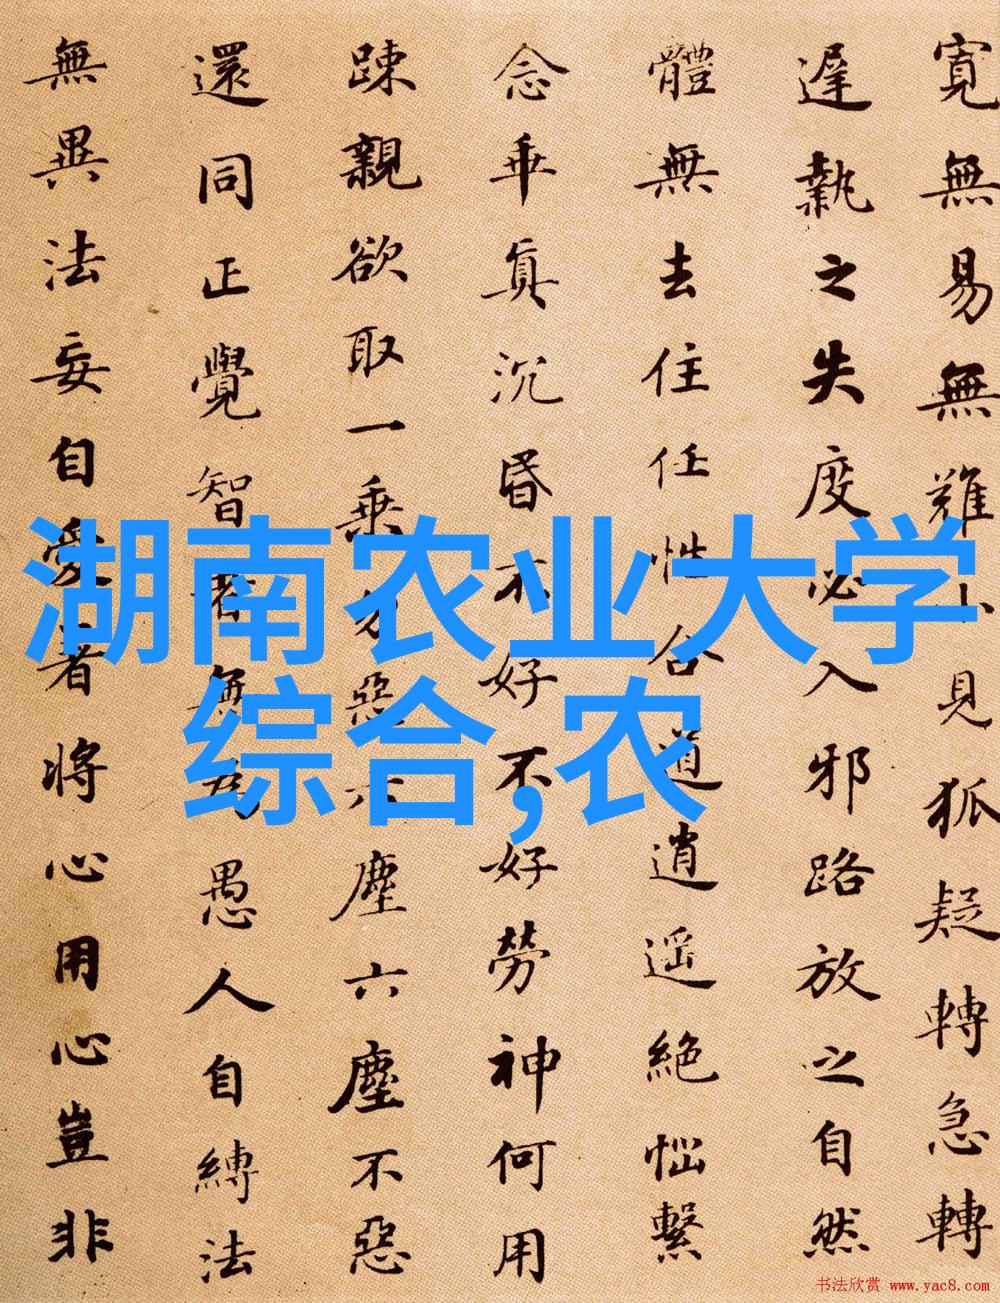 寛無易無難小見狐疑轉急轉
遟執之失度必入邪路放之自然
體無去住任性合道逍遥絶惱繫
念乖真沉昏不好不好勞神何用
踈親欲取一乗勿惡六塵六塵不惡
還同正覺智者無為愚人自縛法
無異法妄自愛著將心用心豈非
湖南农业大学
综合,农
书法欣赏 www.yac8.com